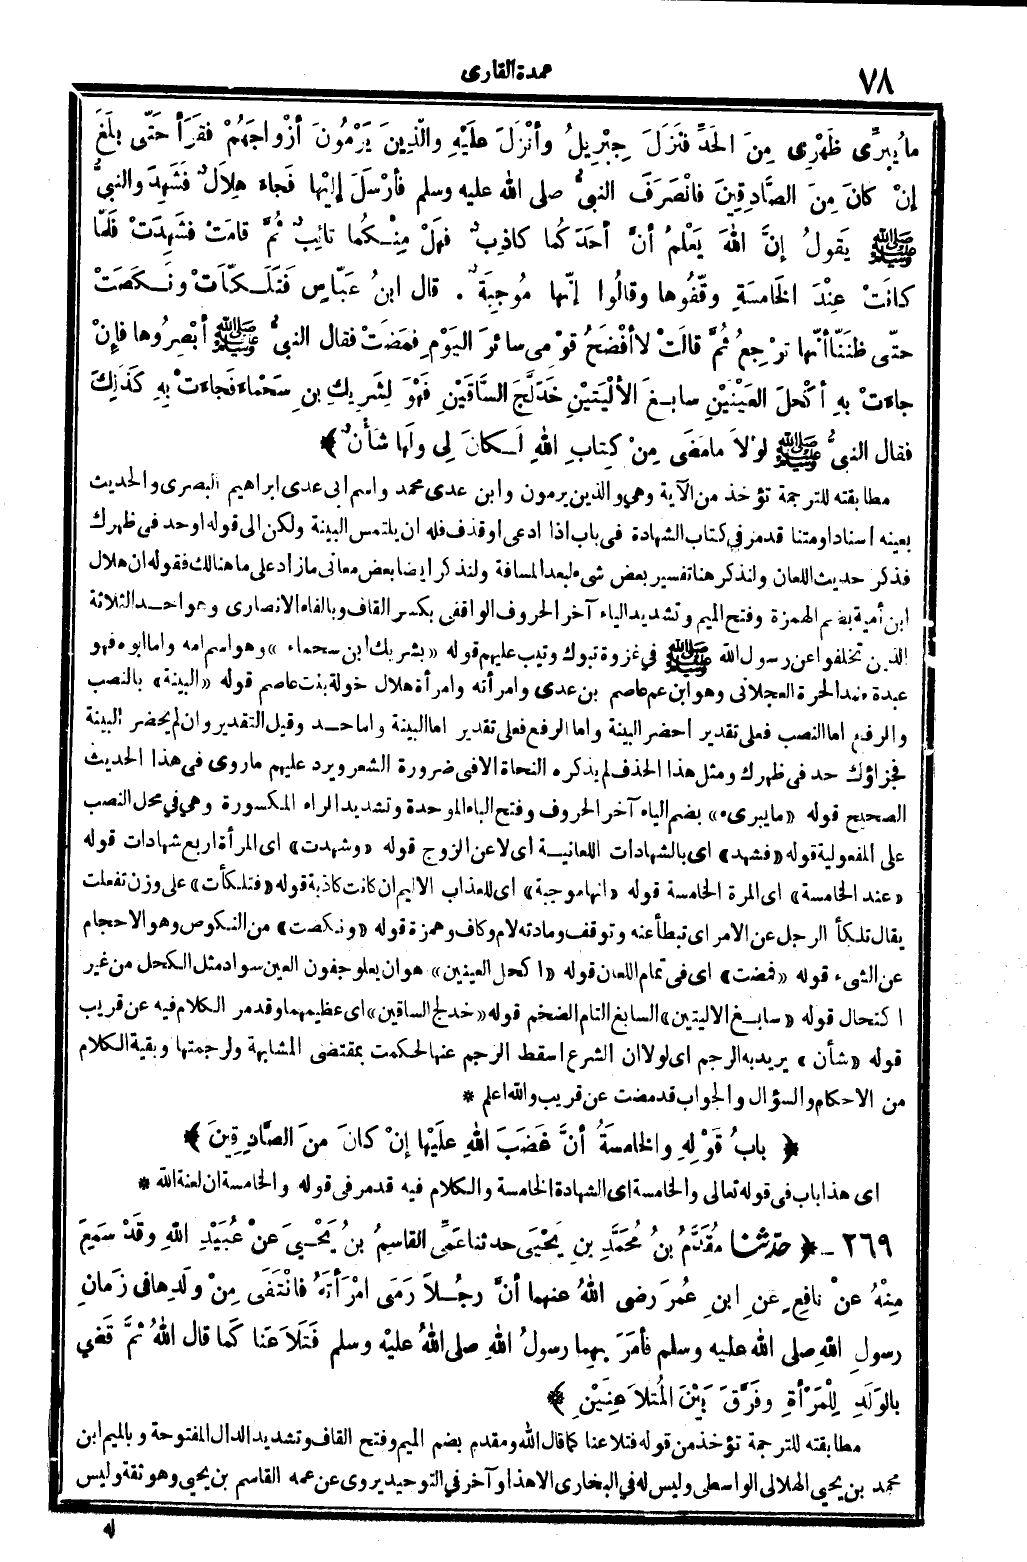 ٧٨
عمدة القارى
ما يُبرِّئُ ظَهْرِى مِنَ الحَدِّ فَنَزَلَ جِبْرِيلُ وأنْزَلَ عَلَيْهِ والَّذِينَ يَرْمُونَ أزْواجَهُمْ فقَرَأ حَتَّى بلَغَ
إنْ كانَ مِنَ الصَّادِقِينَ فانْصَرَفَ النبىُّ صلى الله عليه وسلم فأرْسَلَ إلَيْها فَجاءَ هِلَالٌ فَشَهِدَ والنبىُّ
ﷺ يَقولُ إنَّ اللهَ يَعْلَمُ أنَّ أحَدَكُما كاذِبٌ فهَلْ مِنْكُما تائِبٌ ثُمَّ قامَتْ فشَهِدَتْ فَلَمَّا
كانَتْ عِنْدَ الخَامِسَةِ وقَّفُوها وقالُوا إنَّها مُوجِبَةٌ . قال ابنُ عَبَّاسٍ فَتَلَكَّأَتْ ونَكَصَتْ
حتَّى ظنَنَّا أنَّها ترْجِعُ ثُمَّ قالَتْ لاأفْضَحُ قوْمِى سائرَ اليَوْمِ فمَضَتْ فقال النبىُّ ﷺ أبْصِرُوها فإنْ
جاءَتْ بهِ أكْحَلَ العَيْنَيْنِ سابِغَ الألْيَتَيْنِ خَدَلَّجَ السَّاقَيْنِ فَهْوَ لِشَرِيكِ بنِ سَحْماءَ فجاءَتْ بِهِ كَذَلِكَ
فقال النبىُّ ﷺ لوْلاَ ما مَضَى مِنْ كِتابِ اللهِ لَكانَ لِى ولَها شَأْنٌ ﴾
مطابقته للترجمة تؤخذ من الآية وهى والذين يرمون وابن عدى محمد واسم ابى عدى ابراهيم البصرى والحديث
بعينه اسنادا ومتنا قد مر فى كتاب الشهادة فى باب اذا ادعى او قذف فله ان يلتمس البينة ولكن الى قوله او حد فى ظهرك
فذكر حديث اللعان ولنذكر هنا تفسير بعض شىء لبعد المسافة ولنذكر ايضا بعض معانى مازاد على ما هنالك فقوله ان هلال
ابن أمية بضم الهمزة وفتح الميم وتشديد الياء آخر الحروف الواقفى بكسر القاف وبالفاء الانصارى وهو احد الثلاثة
الذين تخلفوا عن رسول الله ﷺ فى غزوة تبوك وتيب عليهم قوله «بشريك ابن سحماء» وهو اسم امه واما ابوه فهو
عبدة ضد الحرة العجلانى وهو ابن عم عاصم بن عدى وامرأته وامرأة هلال خولة بنت عاصم قوله «البينة» بالنصب
والرفع اما النصب فعلى تقدير احضر البينة واما الرفع فعلى تقدير اما البينة واما حد وقيل التقدير وان لم يحضر البينة
فجزاؤك حد فى ظهرك ومثل هذا الحذف لم يذكره النحاة الا فى ضرورة الشعر ويرد عليهم ماروى فى هذا الحديث
الصحيح قوله «مايبرىء» بضم الياء آخر الحروف وفتح الباء الموحدة وتشديد الراء المكسورة وهى فى محل النصب
على المفعولية قوله «فشهد» اى بالشهادات اللعانية اى لاعن الزوج قوله «وشهدت» اى المرأة اربع شهادات قوله
«عند الخامسة» اى المرة الخامسة قوله «انها موجبة» اى للعذاب الاليم ان كانت كاذبة قوله «فتلكأت» على وزن تفعلت
يقال تلكأ الرجل عن الامر اى تبطأ عنه وتوقف ومادته لام وكاف وهمزة قوله «ونكصت» من النكوص وهو الاحجام
عن الشىء قوله «فمضت» اى فى تمام اللعان قوله «اكحل العينين» هو ان يعلو جفون العين سواد مثل الكحل من غير
اكتحال قوله «سابغ الاليتين» السابغ التام الضخم قوله «خدلج الساقين» اى عظيمهما وقد مر الكلام فيه عن قريب
قوله «شأن» يريد به الرجم اى لولا ان الشرع اسقط الرجم عنها لحكمت بمقتضى المشابهة ولرجمتها وبقية الكلام
من الاحكام والسؤال والجواب قد مضت عن قريب والله اعلم *
﴿ بابُ قَوْلِهِ والخامِسَةُ أنَّ غَضَبَ اللهِ علَيْها إنْ كانَ منَ الصَّادِقِينَ ﴾
اى هذا باب فى قوله تعالى والخامسة اى الشهادة الخامسة والكلام فيه قد مر فى قوله والخامسة ان لعنة الله *
٢٦٩ - ﴿ حدثنا مُقَدَّمُ بنُ مُحَمَّدِ بنِ يَحْيَى حدثنا عَمِّى القاسِمُ بنُ يَحْيى عنْ عُبَيْدِ اللهِ وقَدْ سَمِعَ
مِنْهُ عنْ نافِعٍ عَنِ ابنِ عُمَرَ رضى اللهُ عنهما أنَّ رجُلاً رَمَى امْرَأتَهُ فانْتَفَى مِنْ ولَدِها فى زَمانِ
رسولِ اللهِ صلى الله عليه وسلم فأمَرَ بِهِما رسولُ اللهِ صلى اللهُ عليْهِ وسلم فَتَلاَعَنا كَما قال اللهُ ثُمَّ قَضَى
بالوَلَدِ لِلْمَرْأةِ وفَرَّقَ بَيْنَ المُتَلاَعِنَيْنِ ﴾
مطابقته للترجمة تؤخذ من قوله فتلاعنا كما قال الله ومقدم بضم الميم وفتح القاف وتشديد الدال المفتوحة وبالميم ابن
محمد بن يحيى الهلالى الواسطى وليس له فى البخارى الا هذا وآخر فى التوحيد يروى عن عمه القاسم بن يحيى وهو ثقة وليس
له